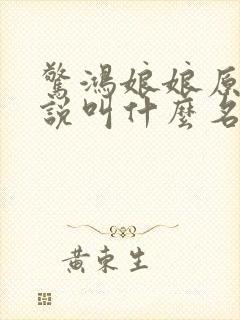 驚鴻娘娘原
說叫什麼名
黃東生